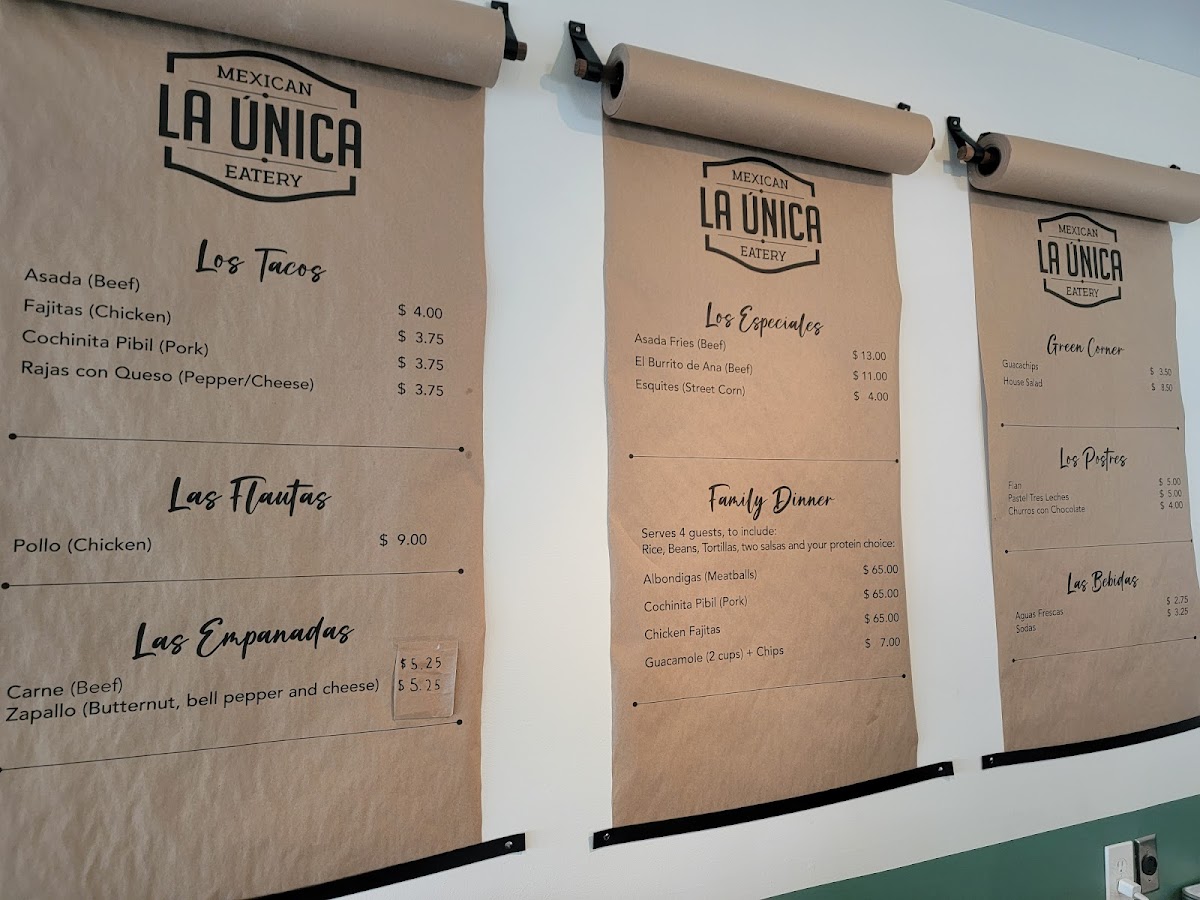 MEXICAN
LA ÚNICA
EATERY
Los Tacos
Asada (Beef) $ 4.00
Fajitas (Chicken) $ 3.75
Cochinita Pibil (Pork) $ 3.75
Rajas con Queso (Pepper/Cheese) $ 3.75
Las Flautas
Pollo (Chicken) $ 9.00
Las Empanadas
Carne (Beef) $5.25
Zapallo (Butternut, bell pepper and cheese) $5.25
MEXICAN
LA ÚNICA
EATERY
Los Especiales
Asada Fries (Beef) $ 13.00
El Burrito de Ana (Beef) $ 11.00
Esquites (Street Corn) $ 4.00
Family Dinner
Serves 4 guests, to include:
Rice, Beans, Tortillas, two salsas and your protein choice:
Albondigas (Meatballs) $ 65.00
Cochinita Pibil (Pork) $ 65.00
Chicken Fajitas $ 65.00
Guacamole (2 cups) + Chips $ 7.00
MEXICAN
LA ÚNICA
EATERY
Green Corner
Guacachips $ 3.50
House Salad $
Los Postres
Flan $ 5.00
Pastel Tres Leches $ 5.00
Churros con Chocolate $ 4.00
Las Bebidas
Aguas Frescas $ 2.75
Sodas $ 3.25